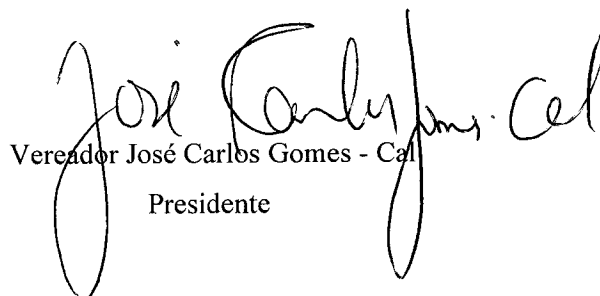 José Carlos Gomes - Cal
Vereador José Carlos Gomes - Cal
Presidente